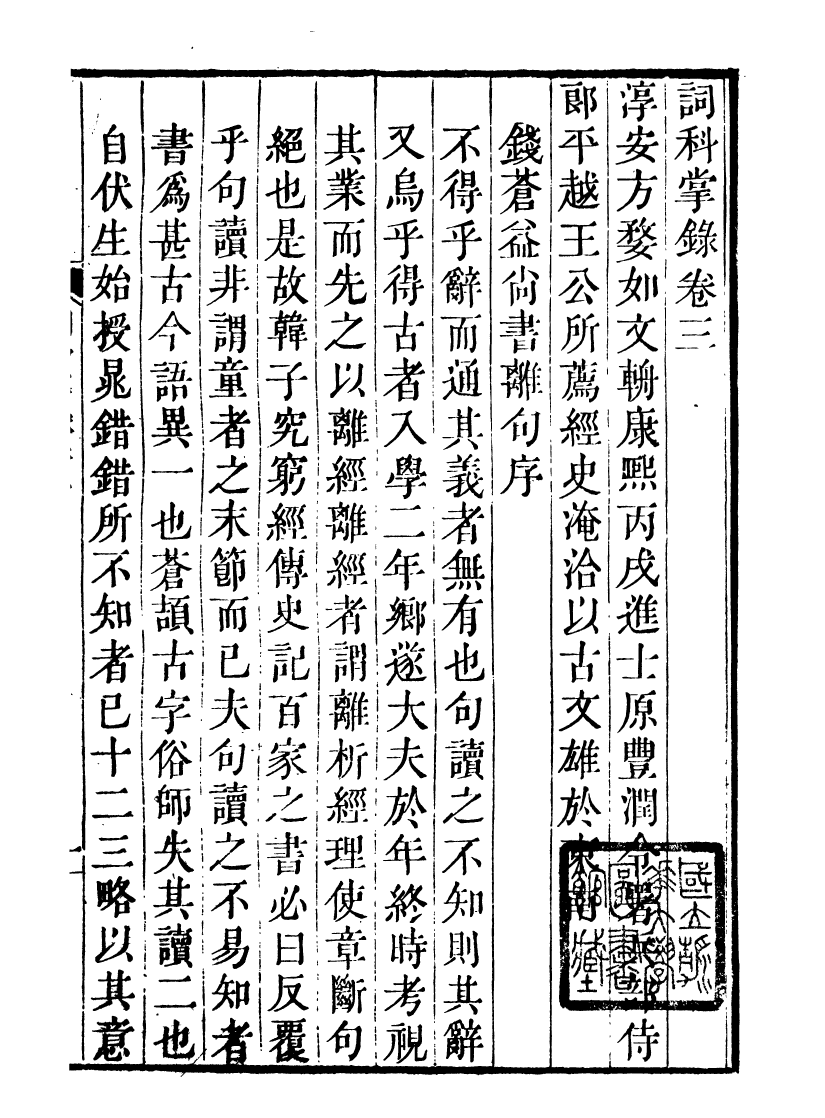 詞科掌錄卷三
淳安方婺如文輈康熙丙戌進士原豐潤令署部侍
郎平越王公所薦經史淹洽以古文雄於東南
錢蒼益尙書離句序
不得乎辭而通其義者無有也句讀之不知則其辭
又烏乎得古者入學二年鄉遂大夫於年終時考視
其業而先之以離經離經者謂離析經理使章斷句
絕也是故韓子究窮經傳史記百家之書必曰反覆
乎句讀非謂童者之末節而已夫句讀之不易知者
書爲甚古今語異一也蒼頡古字俗師失其讀二也
自伏生始授晁錯錯所不知者已十二三略以其意
國立
大學
圖書
館藏